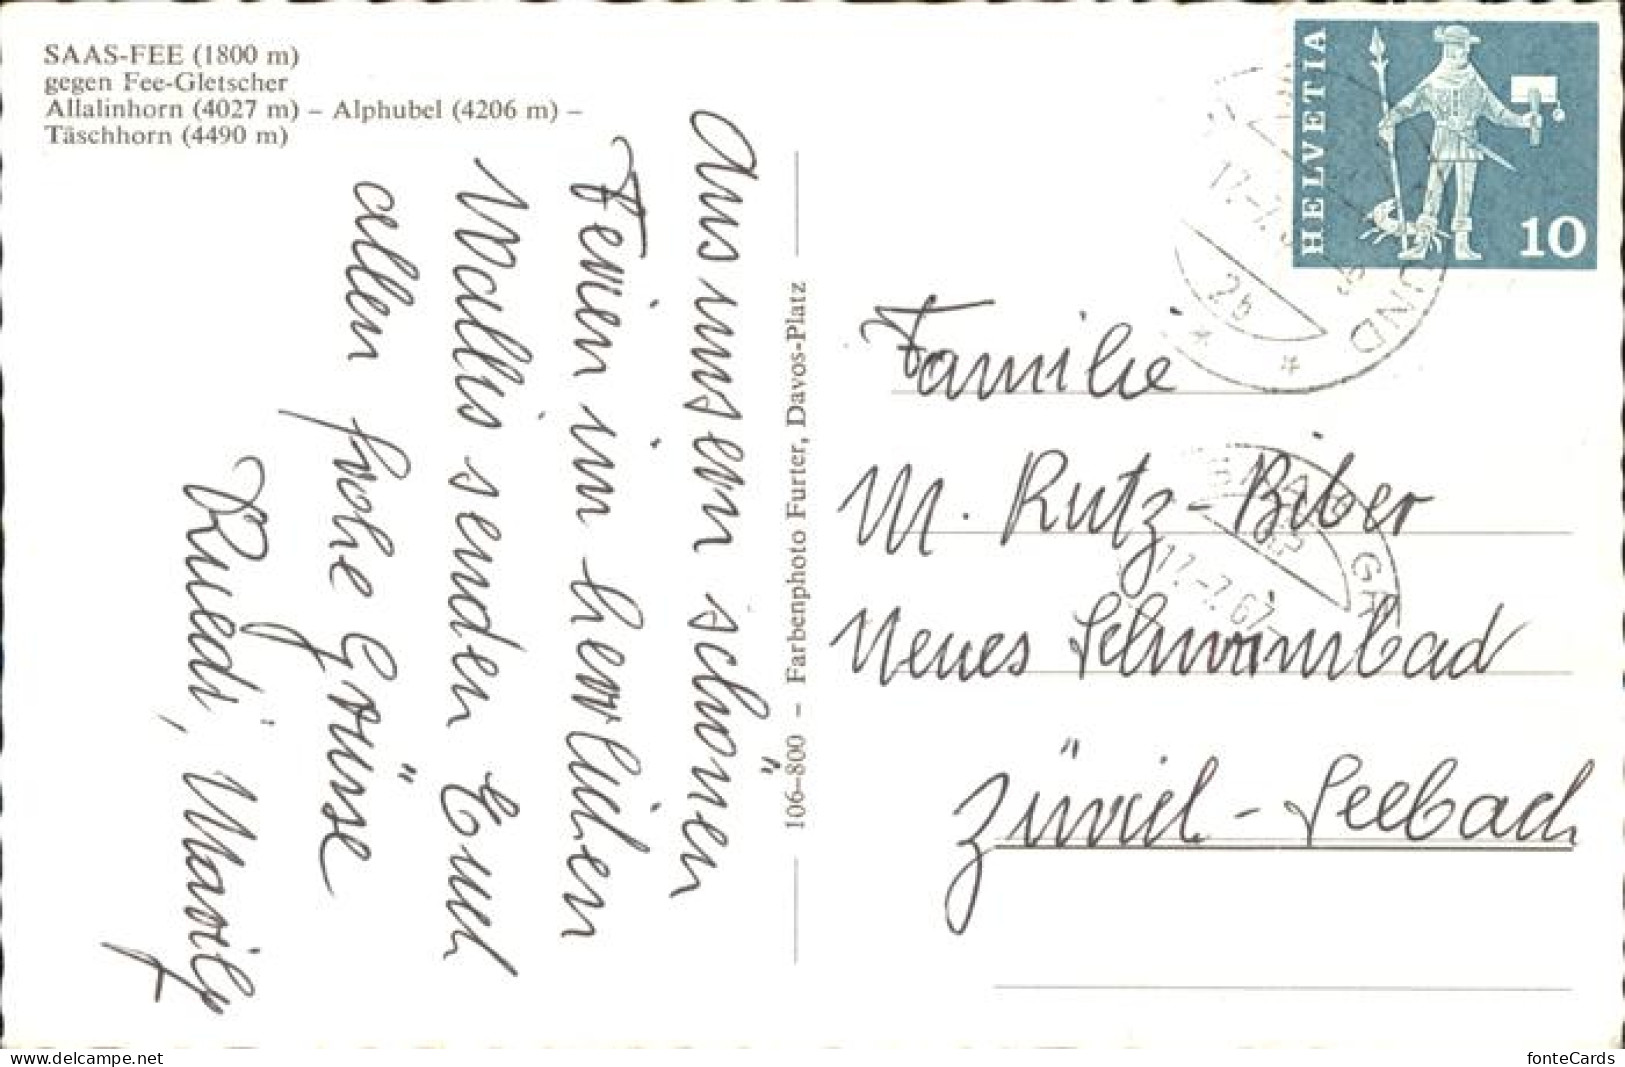 SAAS-FEE (1800 m)
gegen Fee-Gletscher
Allalinhorn (4027 m) – Alphubel (4206 m) –
Täschhorn (4490 m)
Aus unsern schönen
Ferien im herrlichen
Wallis senden Euch
allen frohe Grüsse
Ruedi, Marily
106–800 – Farbenphoto Furter, Davos-Platz
HELVETIA
10
GRUND
26
17.-7.67
Familie
M. Rutz-Biber
Neues Schwimmbad
Zürich-Seebach
www.delcampe.net
fonteCards